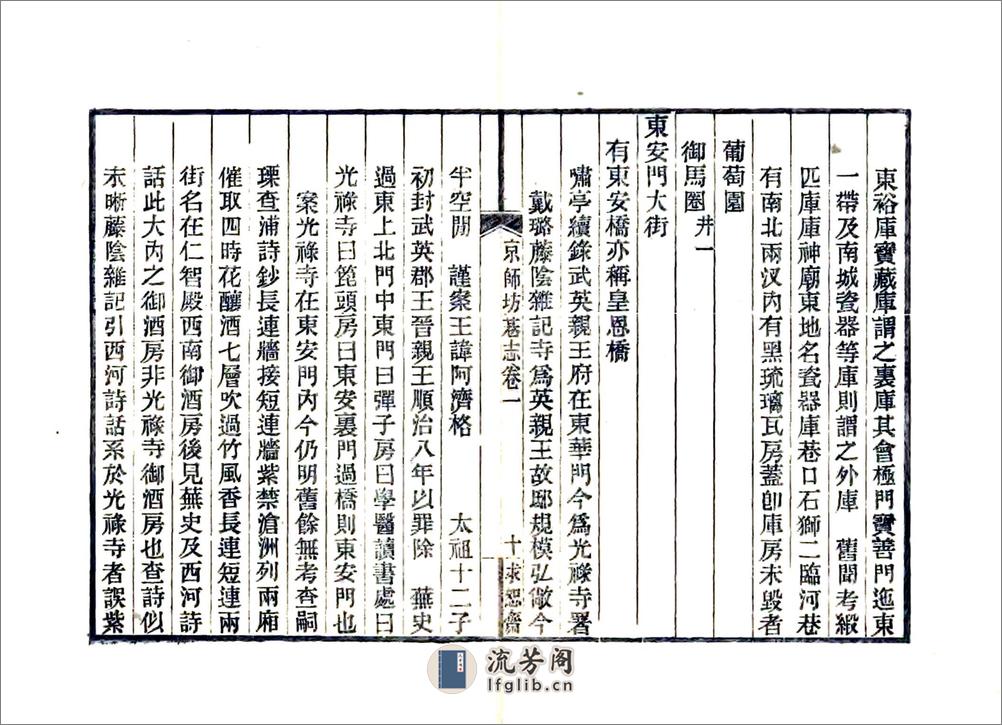 東裕庫寶藏庫謂之裏庫其會極門寶善門迤東
一帶及南城瓷器等庫則謂之外庫　舊聞考緞
匹庫庫神廟東地名瓷器庫巷口石獅二臨河巷
有南北兩汊內有黑琉璃瓦房蓋卽庫房未毀者
葡萄園
御馬圈井一
東安門大街
有東安橋亦稱皇恩橋
嘯亭續錄武英親王府在東華門今爲光祿寺署
戴璐藤陰雜記寺爲英親王故邸規模弘敞今
京師坊巷志卷一　十　求恕齋
半空閒　謹案王諱阿濟格　太祖十二子
初封武英郡王晉親王順治八年以罪除　蕪史
過東上北門中東門曰彈子房曰學醫讀書處曰
光祿寺曰篦頭房曰東安裏門過橋則東安門也
案光祿寺在東安門內今仍明舊餘無考查嗣
瑮查浦詩鈔長連牆接短連牆紫禁滄洲列兩廂
催取四時花釀酒七層吹過竹風香長連短連兩
街名在仁智殿西南御酒房後見蕪史及西河詩
話此大內之御酒房非光祿寺御酒房也查詩似
未晰藤陰雜記引西河詩話系於光祿寺者誤紫
流芳阁
lfglib.cn